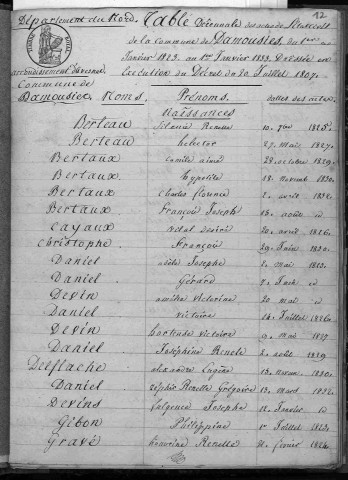 12
Département du Nord. Table Décennale des actes de
de la commune de Damousies, du 1er
Janvier 1823. au 1er Janvier 1833. Dressée en
Exécution du Décret du 20 Juillet 1807.
arrondissement d'avesnes
Commune de
Damousies. Noms. Prénoms. dattes des actes.
Naissances
Berteau Rosalie 10. 1825.
Berteau hector 27. mai 1827.
Bertaux camille aimé 28. octobre 1829.
Bertaux hypolite 13. Novemb 1830.
Bertaux Charles florence 2. avril 1832.
Bertaux François Joseph 15. août id
Cayaux vital désiré 20. avril 1826.
Christophe François 29. Juin 1830.
Daniel adèle Josephe 2. mai 1823.
Daniel Gérard 7. id
Devin victorine 20. mai id
Daniel victoire 14. Juillet 1826.
Devin hortense victoire mai 1827
Daniel Joséphine 2. août 1829
Delflache alexandre Eugène 13. 1830.
Daniel Zéphir Grégoire 13. Mars 1832.
Devins fulgence Josephe 12. Janvier id
Gibon Philippine 1er Juillet 1823.
Gravé 21. février 1824.